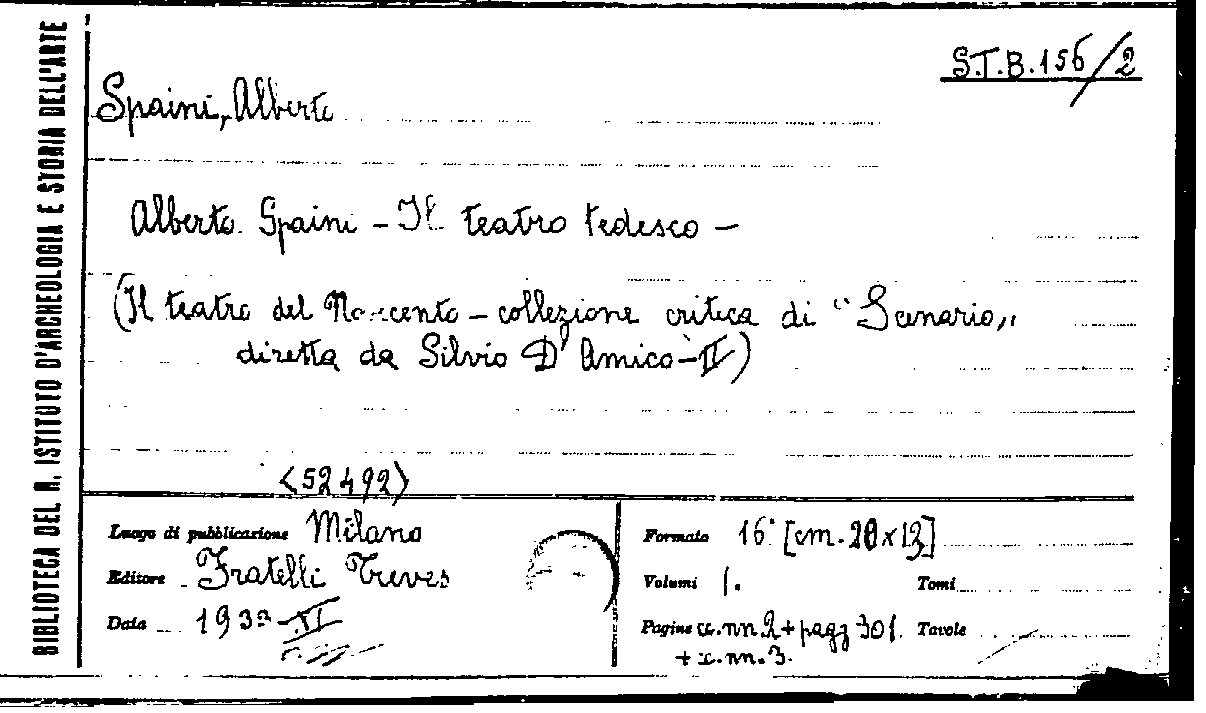 BIBLIOTECA DEL R. ISTITUTO D'ARCHEOLOGIA E STORIA DELL'ARTE
S.T.B.156/2
Spaini, Alberto
Alberto Spaini - Il teatro tedesco -
(Il teatro del Novecento - collezione critica di "Scenario„
diretta da Silvio D'Amico - II)
<52492>
Luogo di pubblicazione Milano
Editore Fratelli Treves
Data 1933-XI
Formato 16° [cm. 20x13]
Volumi 1. Tomi
Pagine cc.nn.2 + pagg 301. Tavole
+ c.nn.3.